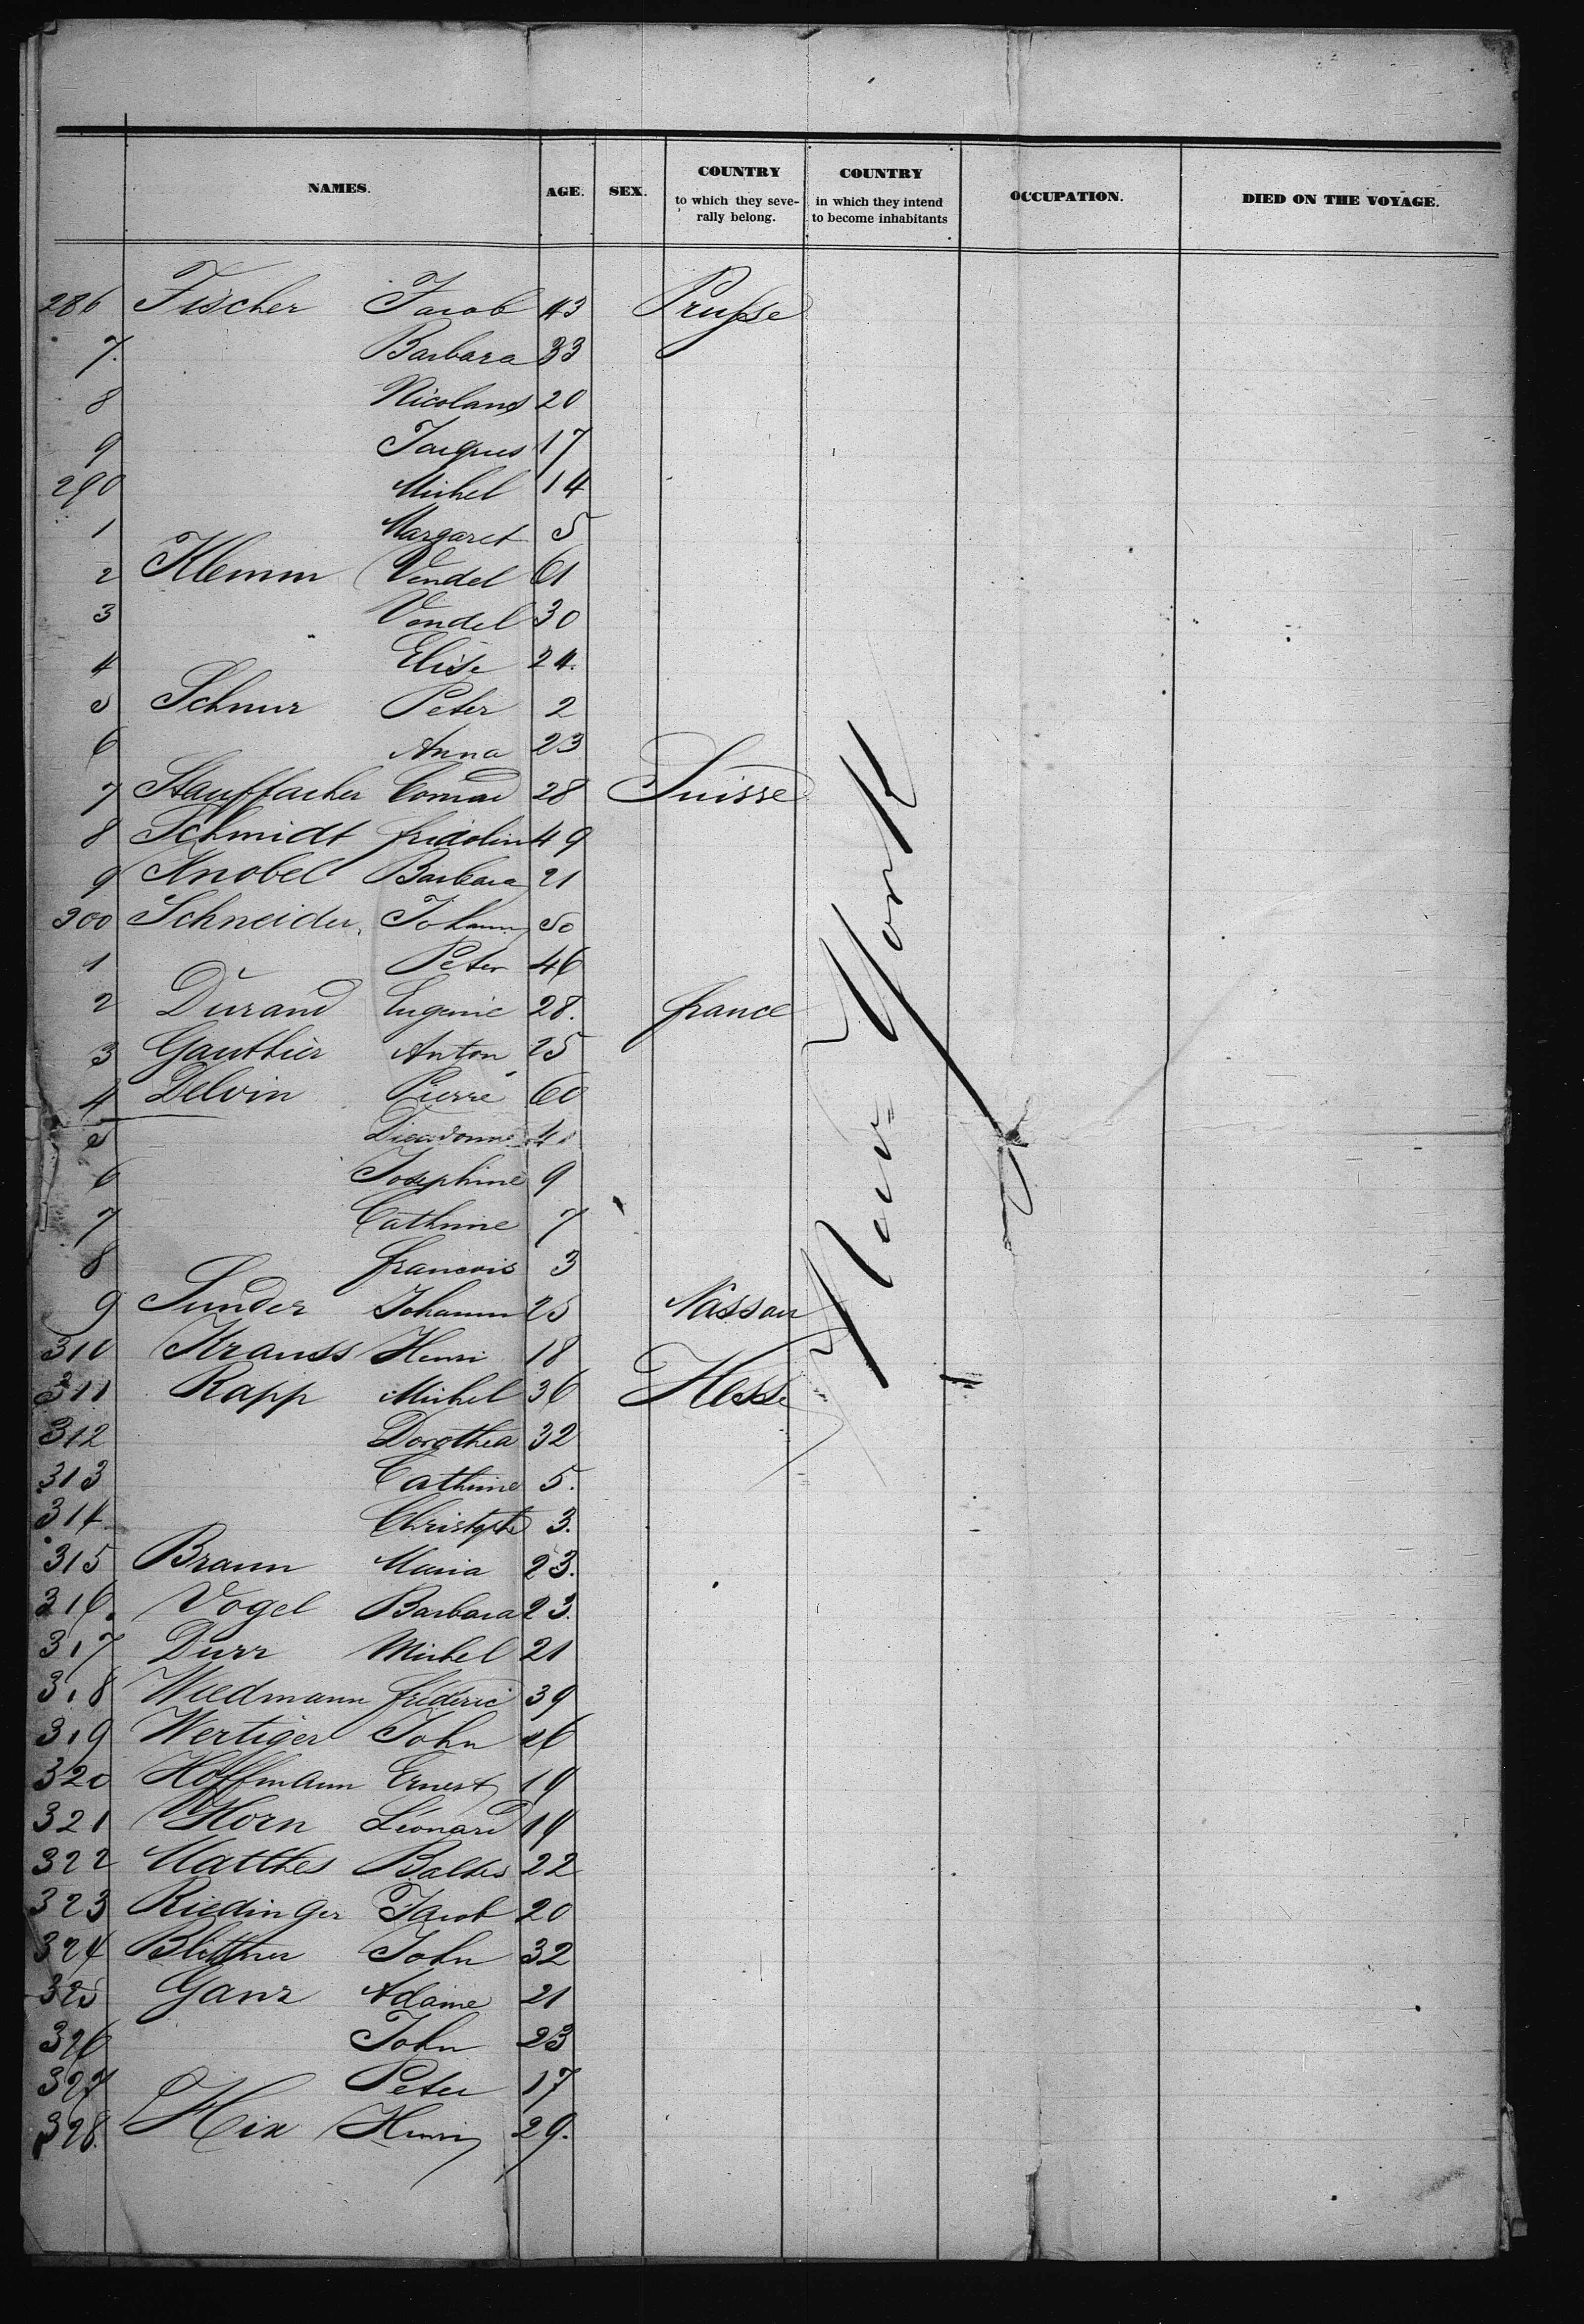 NAMES. AGE. SEX. COUNTRY to which they seve- rally belong. COUNTRY in which they intend to become inhabitants OCCUPATION. DIED ON THE VOYAGE.
286 Fischer Jacob 43 Prusse
7. Barbara 33
8 Nicolaus 20
9 Jacques 17
290 Michel 14
1 Margaret 5
2 Klemm Vendel 61
3 Vendel 30
4 Elise 24.
5 Schnur Peter 2
6 Anna 23
7 Stauffacher Conrad 28 Suisse
8 Schmidt fridolin 49
9 Knobel Barbara 21
300 Schneider Johann 50
1 Peter 46
2 Durand Eugenie 28. france
3 Gauthier Anton 25
4 Delvin Pierre 60
5 Dieudonne
6 Josephine 9
7 Cathrine 7
8 francois 3
9 Sunder Johann 25 Nassau
310 Krauss Henri 18
311 Rapp Michel 36 Hesse
312 Dorothea 32
313 Cathrine 5.
314 Christophe 3.
315 Braun Maria 23.
316. Vogel Barbara 23.
317 Durr Michel 21
318 Wiedmann frederic 39
319 Wertiger John 26
320 Hoffmann Ernest 19
321 Horn Léonard 19
322 Matthes Baltes 22
323 Riedinger Jacob 20
324 Blittner John 32
325 Ganz Adame 21
326 John 23
327 Peter 17
328. Hix Henri 29.
New York